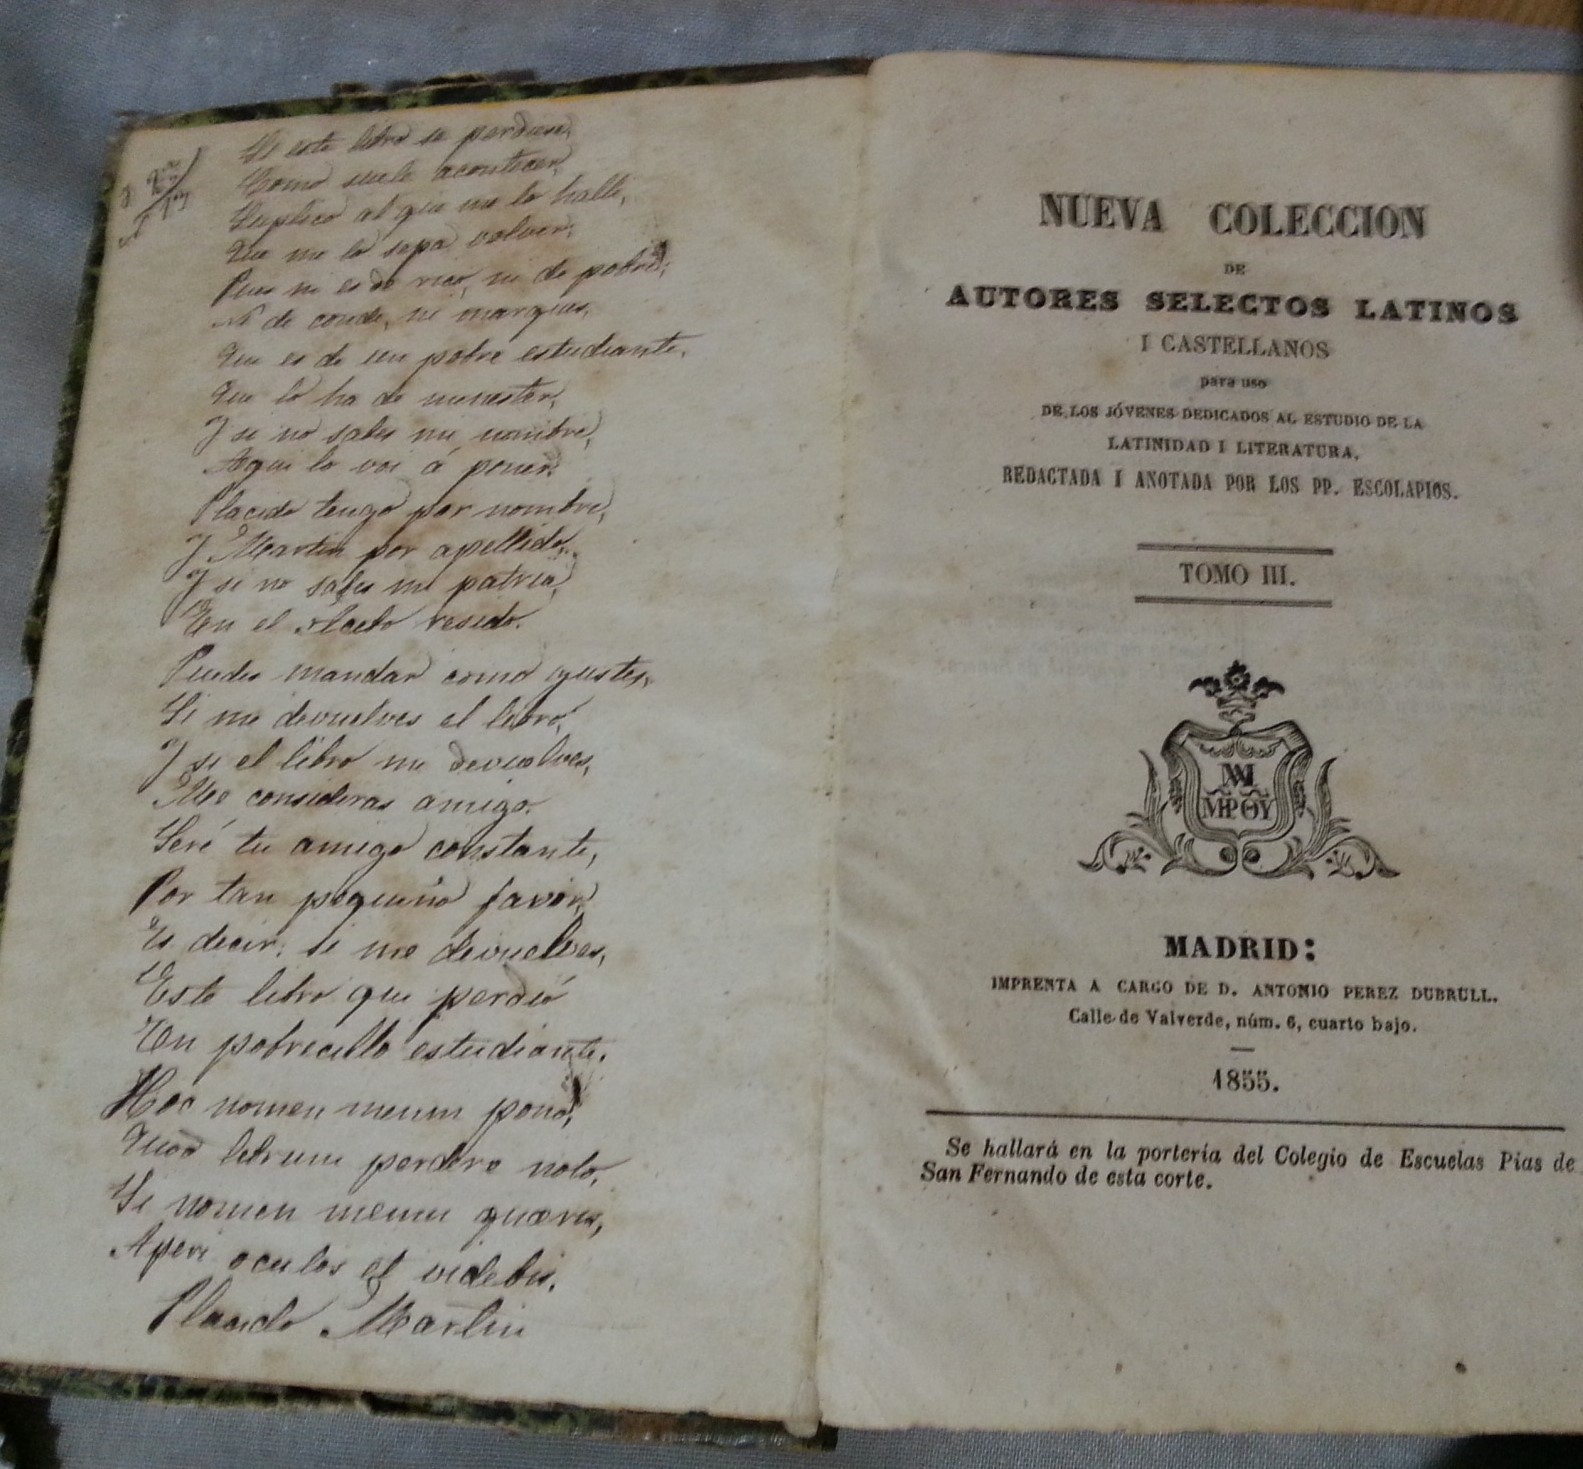 Si este libro se perdiese,
Como suele acontecer,
Suplico al que me lo halle,
Que me lo sepa volver;
Pues ni es de rico, ni de pobre,
Ni de conde, ni marques,
Que es de un pobre estudiante,
Que lo ha de menester,
Y si no sabes mi nombre,
Aqui lo voi á poner.
Placido tengo por nombre,
Y Martin por apellido,
Y si no sabes mi patria,
En el resido.
Puedes mandar como gustes,
Si me devuelves el libro,
Y si el libro me devuelves,
Me consideras amigo.
Seré tu amigo constante,
Por tan pequeño favor,
Es decir, si me devuelves,
Este libro que perdió
Un pobrecillo estudiante.
Hoc nomen meum pono,
Quod librum perdere nolo,
Si nomen meum quæris,
Aperi oculos et videbis.
Placido Martin
NUEVA COLECCION
DE
AUTORES SELECTOS LATINOS
I CASTELLANOS
para uso
DE LOS JÓVENES DEDICADOS AL ESTUDIO DE LA
LATINIDAD I LITERATURA,
REDACTADA I ANOTADA POR LOS PP. ESCOLAPIOS.
TOMO III.
MADRID:
IMPRENTA A CARGO DE D. ANTONIO PEREZ DUBRULL.
Calle de Valverde, núm. 6, cuarto bajo.
1855.
Se hallará en la portería del Colegio de Escuelas Pias de
San Fernando de esta corte.